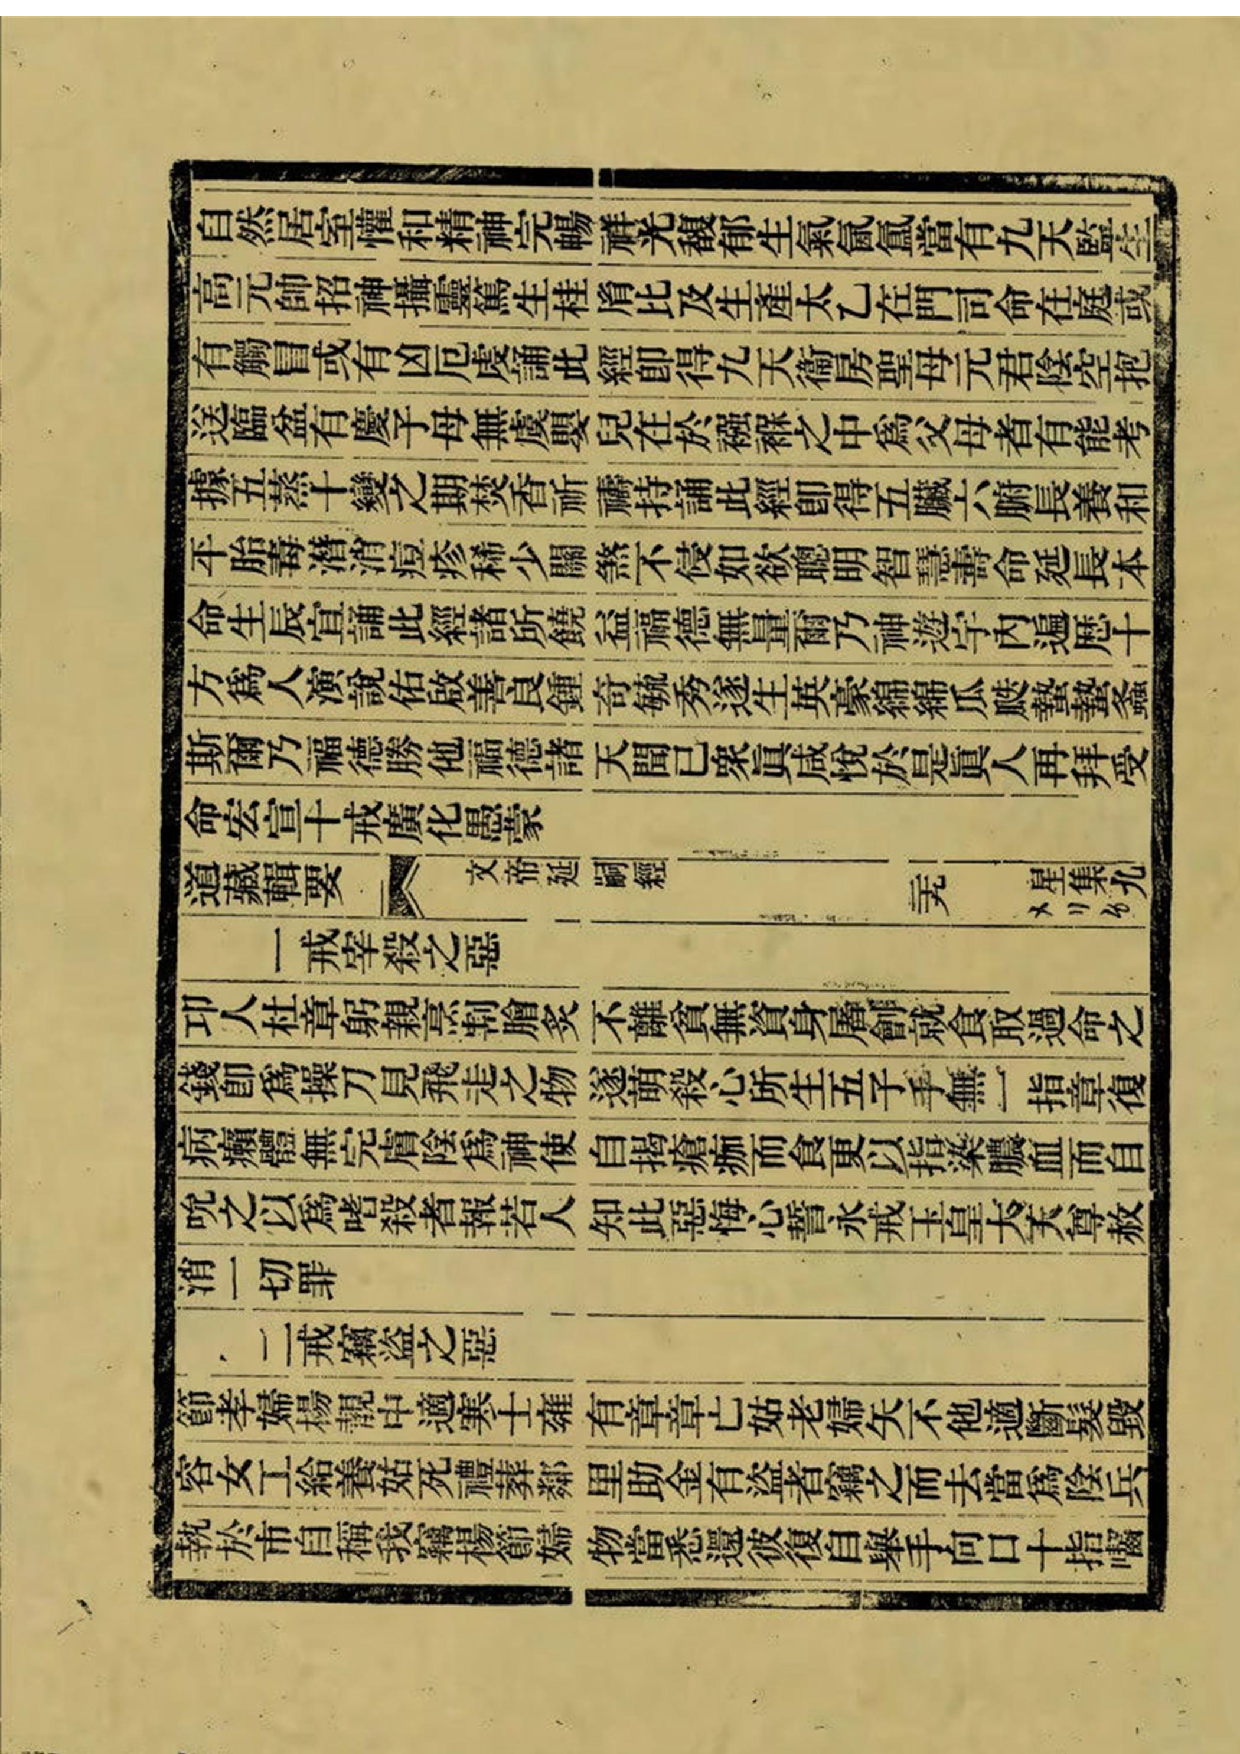 自然居室懽和精神完暢祥光馥郁生氣氤氳當有九天監生
高元帥招神攝靈篤生桂胤比及生產太乙在門司命在庭或
有觸冒或有凶厄虔誦此經卽得九天衞房聖母元君陰空抱
送臨盆有慶子母無虞嬰兒在於襁褓之中爲父母者有能考
據五蒸十變之期焚香祈禱持誦此經卽得五臟六腑長養和
平胎毒潛消痘疹稀少關煞不侵如欲聰明智慧壽命延長本
命生辰宜誦此經諸所饒益福德無量爾乃神遊宇內遍歷十
方爲人演說佑啟善良鍾奇毓秀遂生英豪綿綿瓜瓞蟄蟄螽
斯爾乃福德勝他福德諸天聞已衆眞咸悅於是眞人再拜受
命宏宣十戒廣化愚蒙
道藏輯要 文帝延嗣經 二十九 星集九
一戒宰殺之惡
卭人杜章躬親烹割膾炙不離貧無資身屠劊就食取過命之
錢卽爲操刀見飛走之物遂萌殺心所生五子手無一指章復
病癩體無完膚陰爲神使自揭瘡痂而食更以指染膿血而自
吮之以爲嗜殺者報若人知此惡悔心誓永戒玉皇大天尊赦
消一切罪
二戒竊盜之惡
節孝婦楊靚中適寒士雍有章章亡姑老婦矢不他適斷髮毀
容女工給養姑死禮葬鄰里助金有盜者竊之而去當爲陰兵
執於市自稱我竊楊節婦物當悉還彼復自舉手向口十指嚙